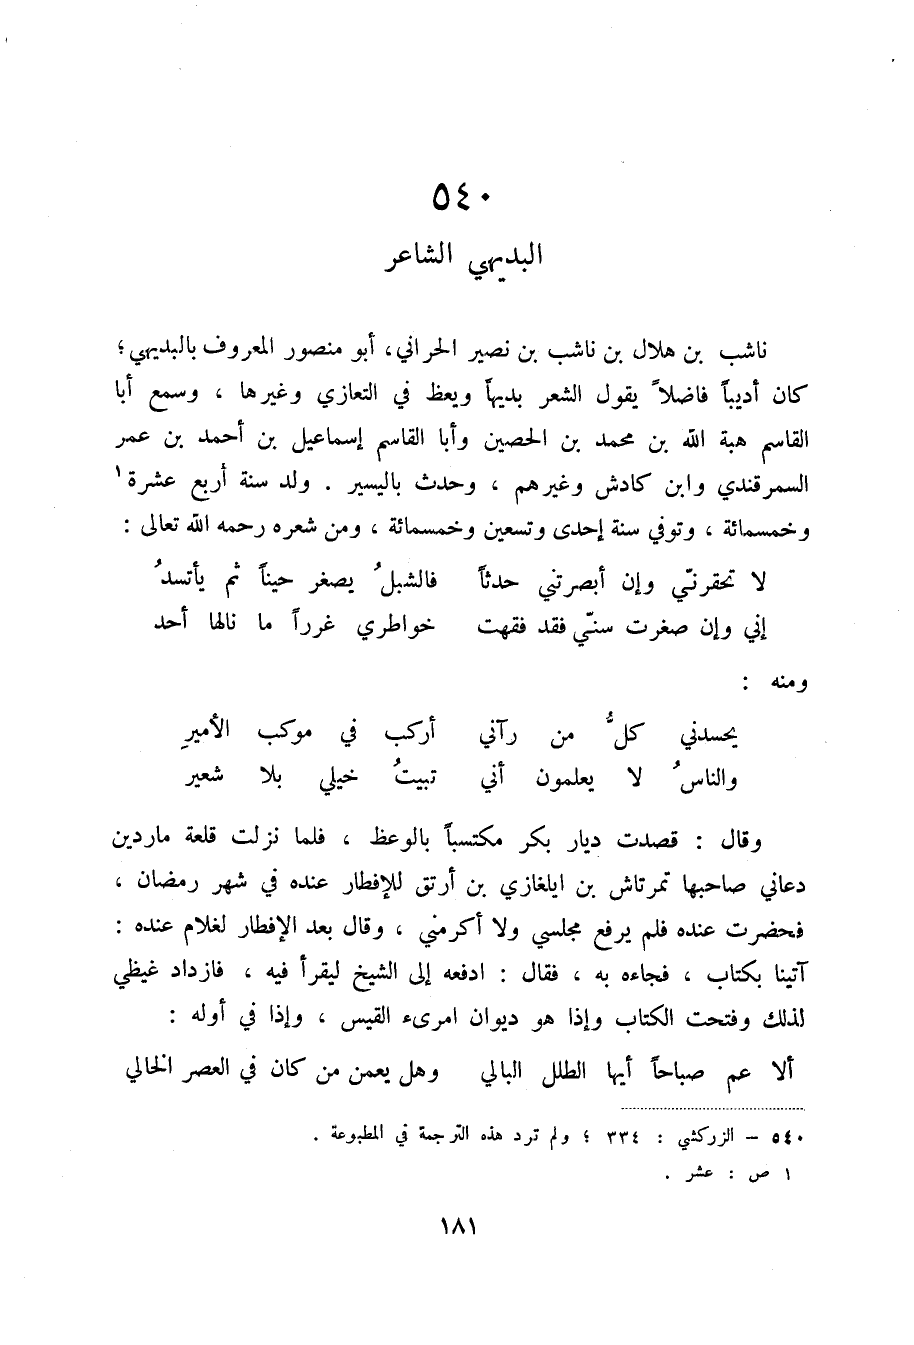 ٥٤٠
البديهي الشاعر
ناشب بن هلال بن ناشب بن نصير الحراني، أبو منصور المعروف بالبديهي؛
كان أديباً فاضلاً يقول الشعر بديهاً ويعظ في التعازي وغيرها ، وسمع أبا
القاسم هبة الله بن محمد بن الحصين وأبا القاسم إسماعيل بن أحمد بن عمر
السمرقندي وابن كادش وغيرهم ، وحدث باليسير . ولد سنة أربع عشرة١
وخمسمائة ، وتوفي سنة إحدى وتسعين وخمسمائة ، ومن شعره رحمه الله تعالى :
لا تحقرنّي وإن أبصرتني حدثاً فالشبلُ يصغر حيناً ثُم يأتسدُ
إني وإن صغرت سنّي فقد فقهت خواطري غرراً ما نالها أحد
ومنه :
يحسدني كلُّ من رآني أركب في موكب الأميرِ
والناسُ لا يعلمون أني تبيتُ خيلي بلا شعير
وقال : قصدت ديار بكر مكتسباً بالوعظ ، فلما نزلت قلعة ماردين
دعاني صاحبها تمرتاش بن ايلغازي بن أرتق للإفطار عنده في شهر رمضان ،
فحضرت عنده فلم يرفع مجلسي ولا أكرمني ، وقال بعد الإفطار لغلام عنده :
آتينا بكتاب ، فجاءه به ، فقال : ادفعه إلى الشيخ ليقرأ فيه ، فازداد غيظي
لذلك وفتحت الكتاب وإذا هو ديوان امرىء القيس ، وإذا في أوله :
ألا عم صباحاً أيها الطلل البالي وهل يعمن من كان في العصر الخالي
٥٤٠ – الزركشي : ٣٣٤ ؛ ولم ترد هذه الترجمة في المطبوعة .
١ ص : عشر .
١٨١